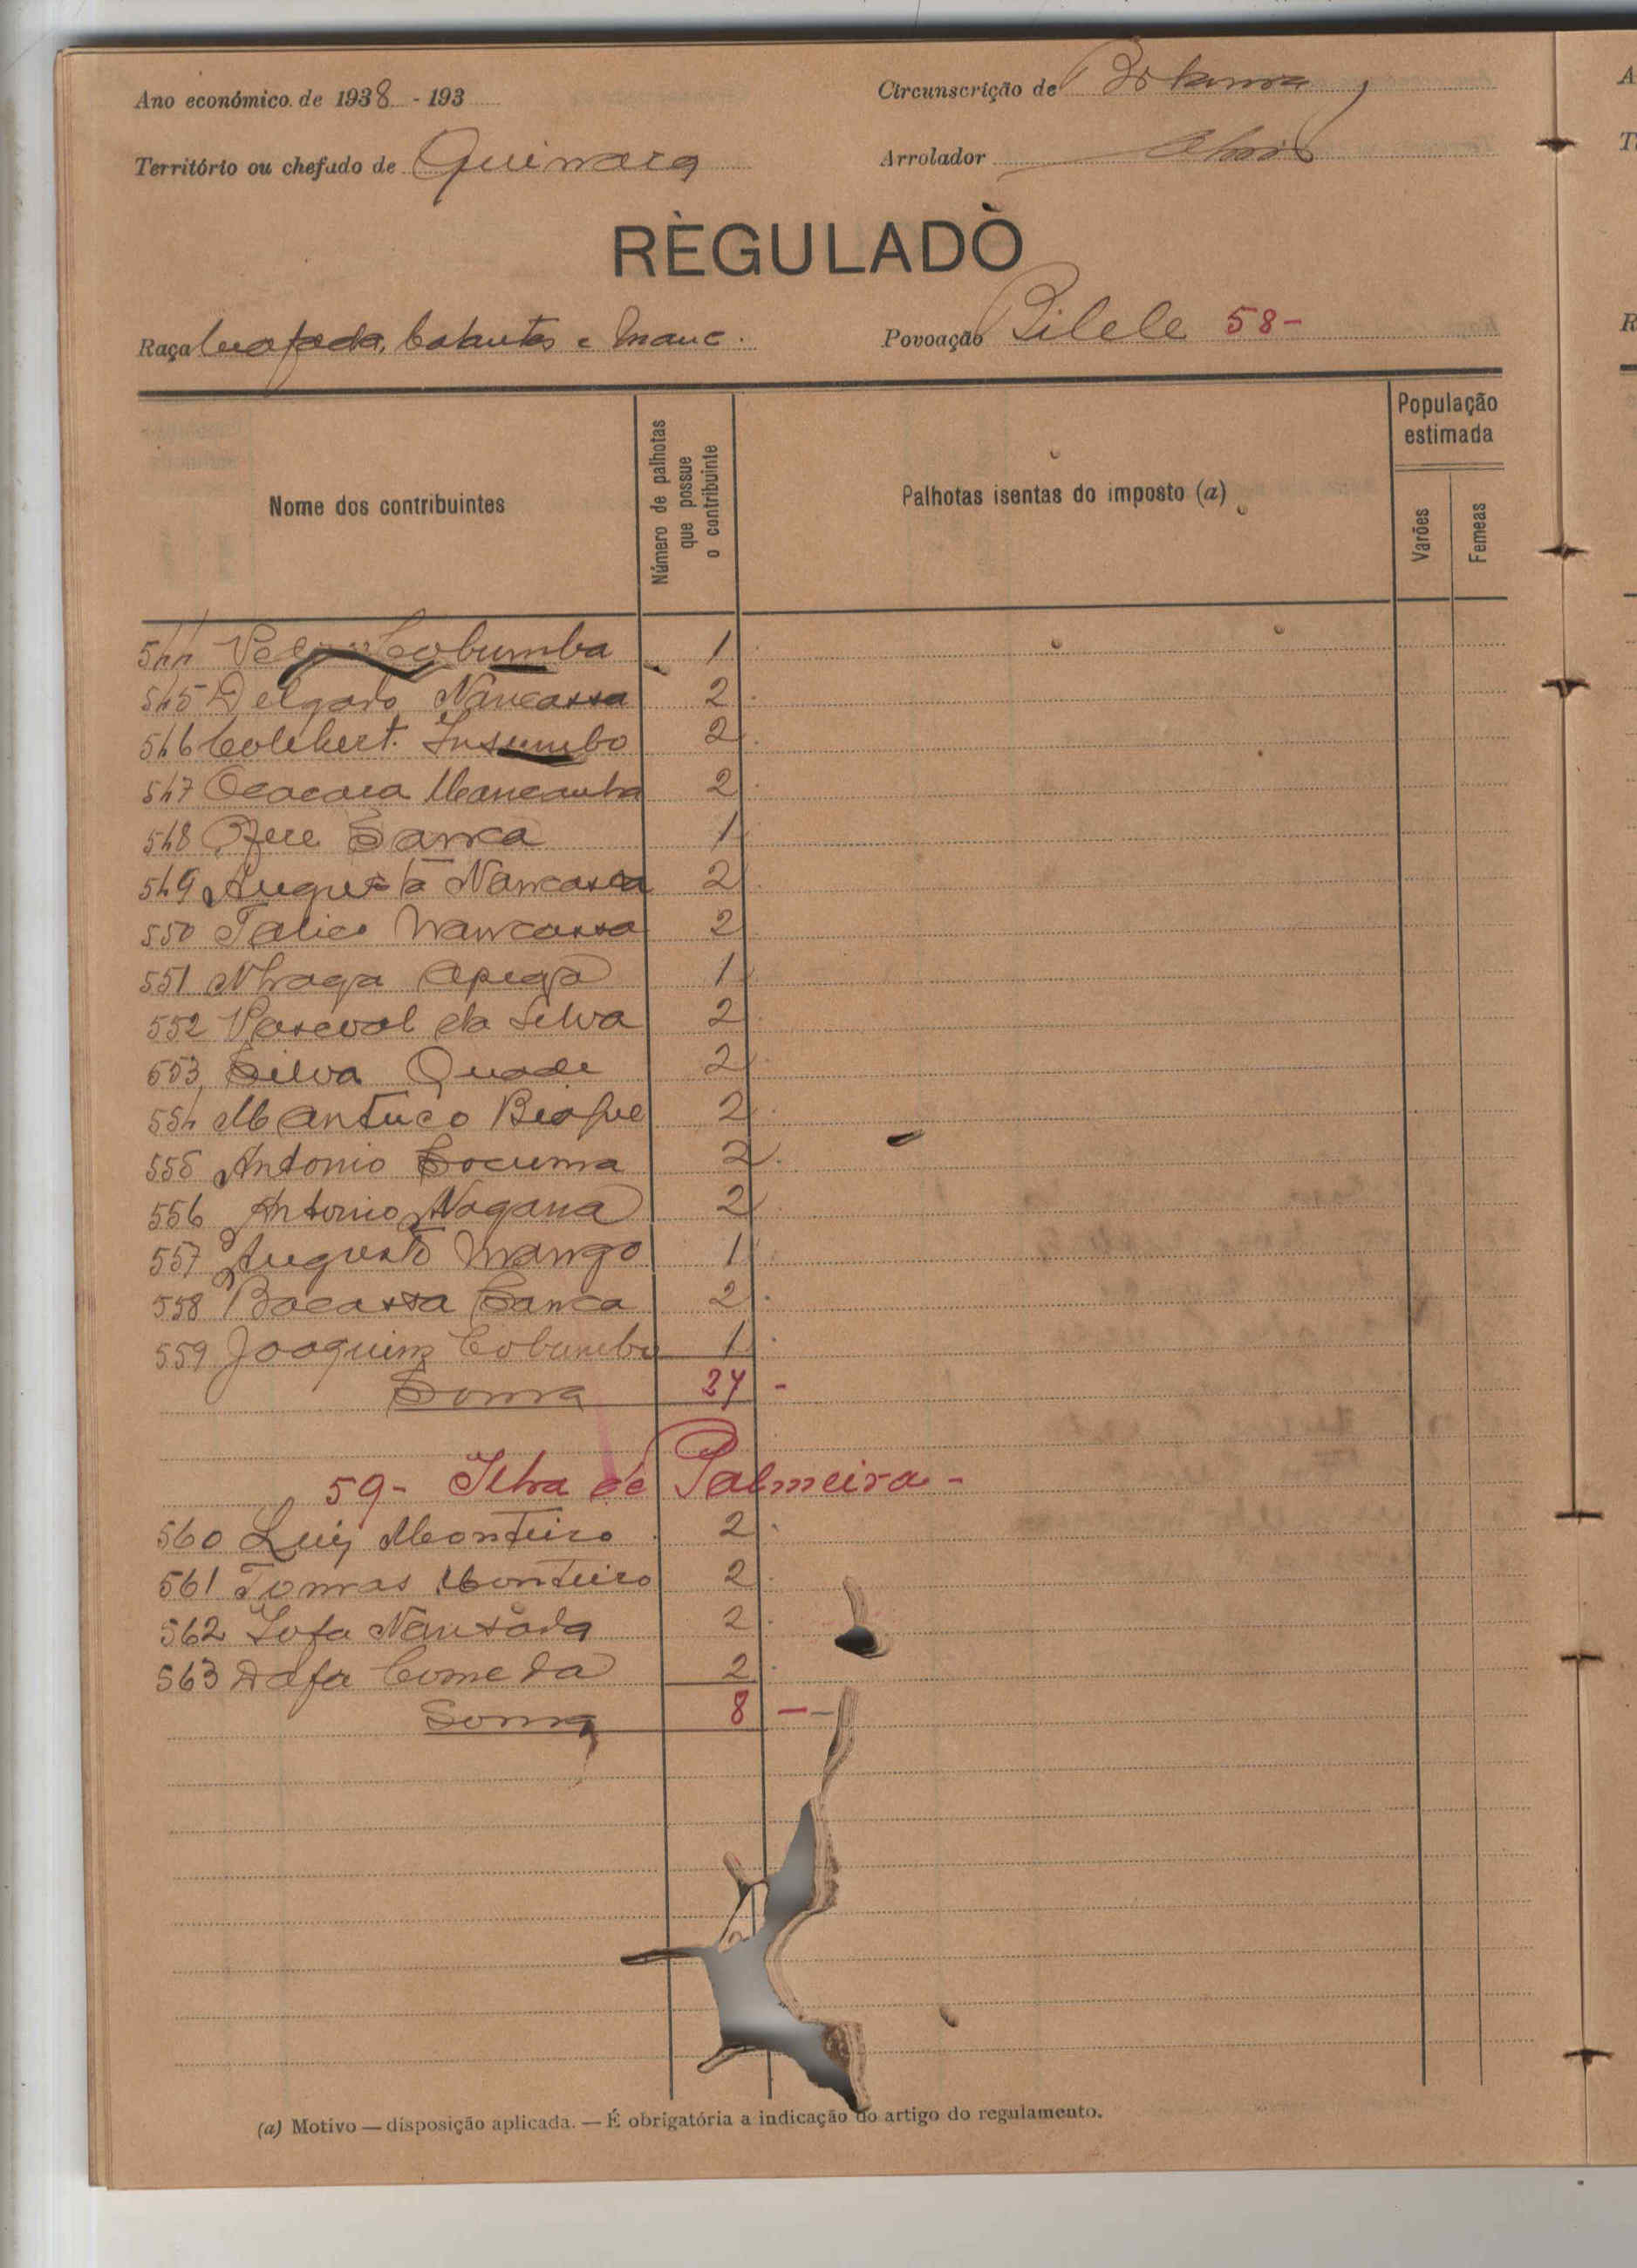 Ano económico de 1938 - 193
Circunscrição de Bolama
Território ou chefado de Quinara
Arrolador
REGULADO
Raça Beafada, Balantas e Manc.
Povoação Bilele 58-
Nome dos contribuintes
Número de palhotas que possue o contribuinte
Palhotas isentas do imposto (a)
População estimada
Varões
Femeas
544 Cobumba 1
545 Delgado Nancassa 2
546 Insumbo 2
547 Mancanha 2
548 Sanca 1
549 Augusto Nancassa 2
550 Nancassa 2
551 1
552 Pascoal da Silva 2
553 Silva Quade 2
554 Mantuco Biofue 2
555 Antonio Socuma 2
556 Antonio Nagana 2
557 Augusto Mango 1
558 Bacassa Sanca 2
559 Joaquim Cobumba 1
Soma 27 -
59- Ilha de Palmeira -
560 Luiz Monteiro 2
561 Tomas Monteiro 2
562 2
563 Dafa 2
Soma 8 -
(a) Motivo — disposição aplicada. — É obrigatória a indicação do artigo do regulamento.